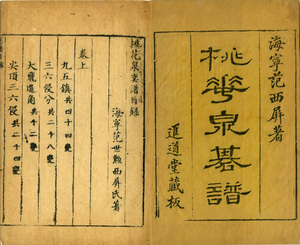 海寧范西屏著
桃華泉棊譜
進道堂藏板
桃花泉棊譜目録
海寧范世勲西屏氏著
卷上
九五鎮共四十四變
三六侵分共二十八變
大壓邊角共十二變
尖頂三六侵共二十四變